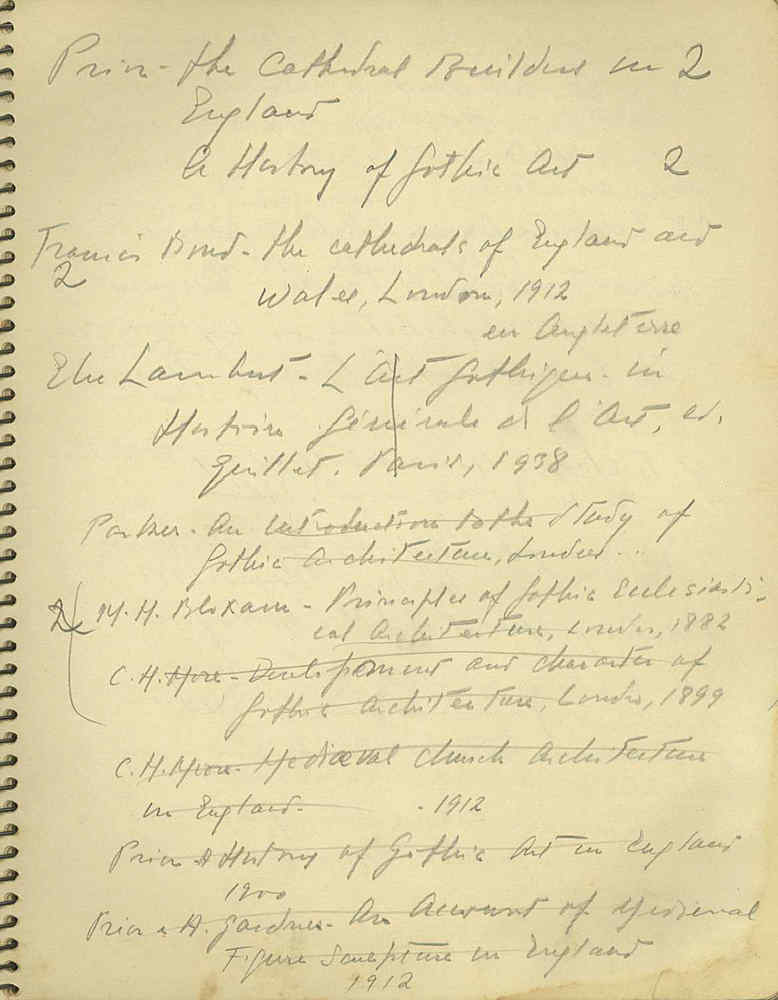 Prior - the Cathedral Builders in 2
England
A History of Gothic Art 2
Francis Bond - the cathedrals of England and
2
Wales, London, 1912
en Angleterre
Elie Lambert - L'art gothique in
Histoire Générale de l'Art, ed.
Quillet. Paris, 1938
Parker - An introduction to the study of
Gothic Architecture, London..
2 M. H. Bloxam - Principles of Gothic Ecclesiasti-
cal Architecture, London, 1882
C. H. More - Development and character of
Gothic Architecture, London, 1899
C. H. More - Mediæval church Architecture
in England. - 1912
Prior A History of Gothic Art in England
1900
Prior & A. Gardner - An Account of Medieval
Figure Sculpture in England
1912